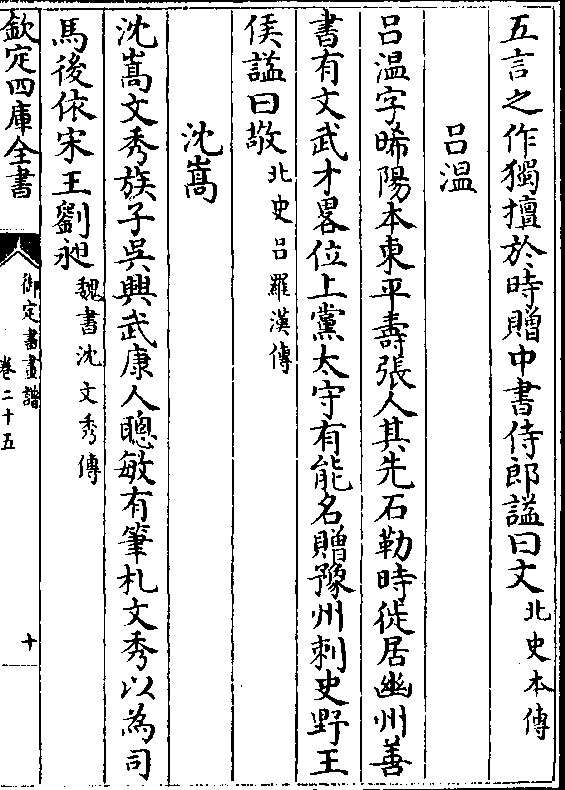 五言之作獨擅於時贈中書侍郎諡曰文北史本傳
吕温
吕温字晞陽本東平壽張人其先石勒時徙居幽州善
書有文武才畧位上黨太守有能名贈豫州刺史野王
侯諡曰敬北史吕羅漢傳
沈嵩
沈嵩文秀族子吳興武康人聰敏有筆札文秀以為司
馬後依宋王劉昶魏書沈文秀傳
欽定四庫全書
御定書畫譜
卷二十五
十